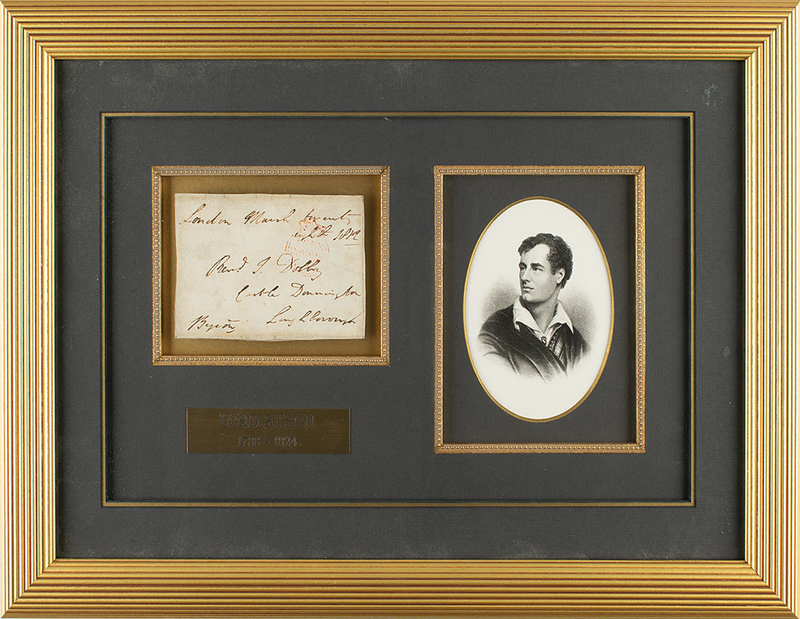 London March twenty
eight 1812
Revd J. Dolby
Castle Donnington
Loughborough
Byron
LORD BYRON
1788 - 1824